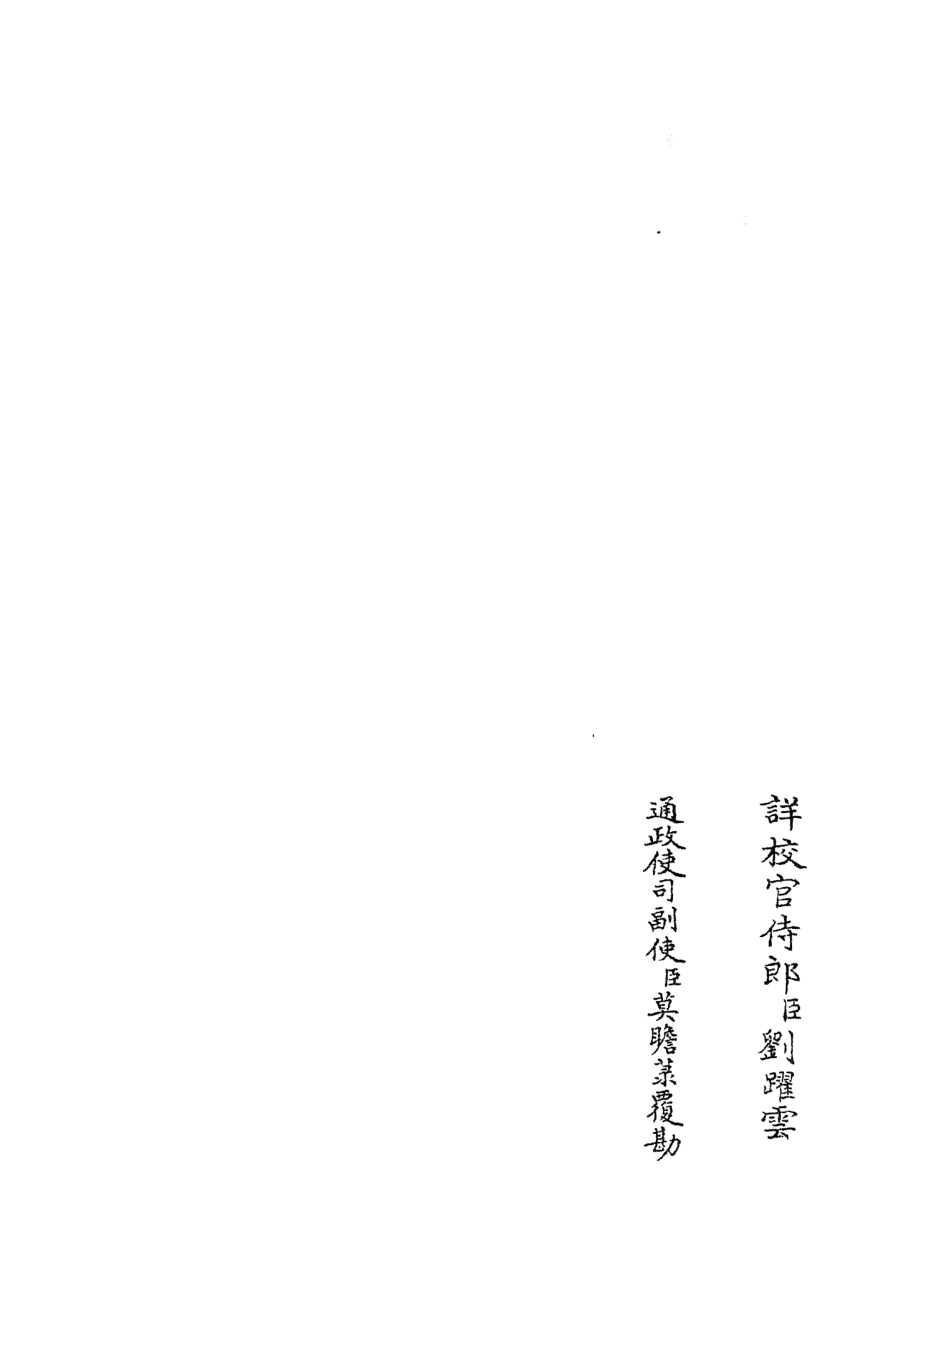 詳校官侍郎臣劉躍雲
通政使司副使臣莫瞻菉覆勘